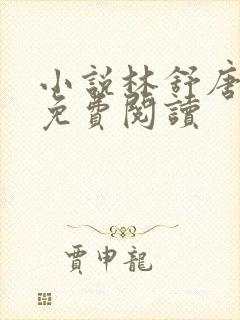 小說林舒唐
免費閱讀
賈申龍